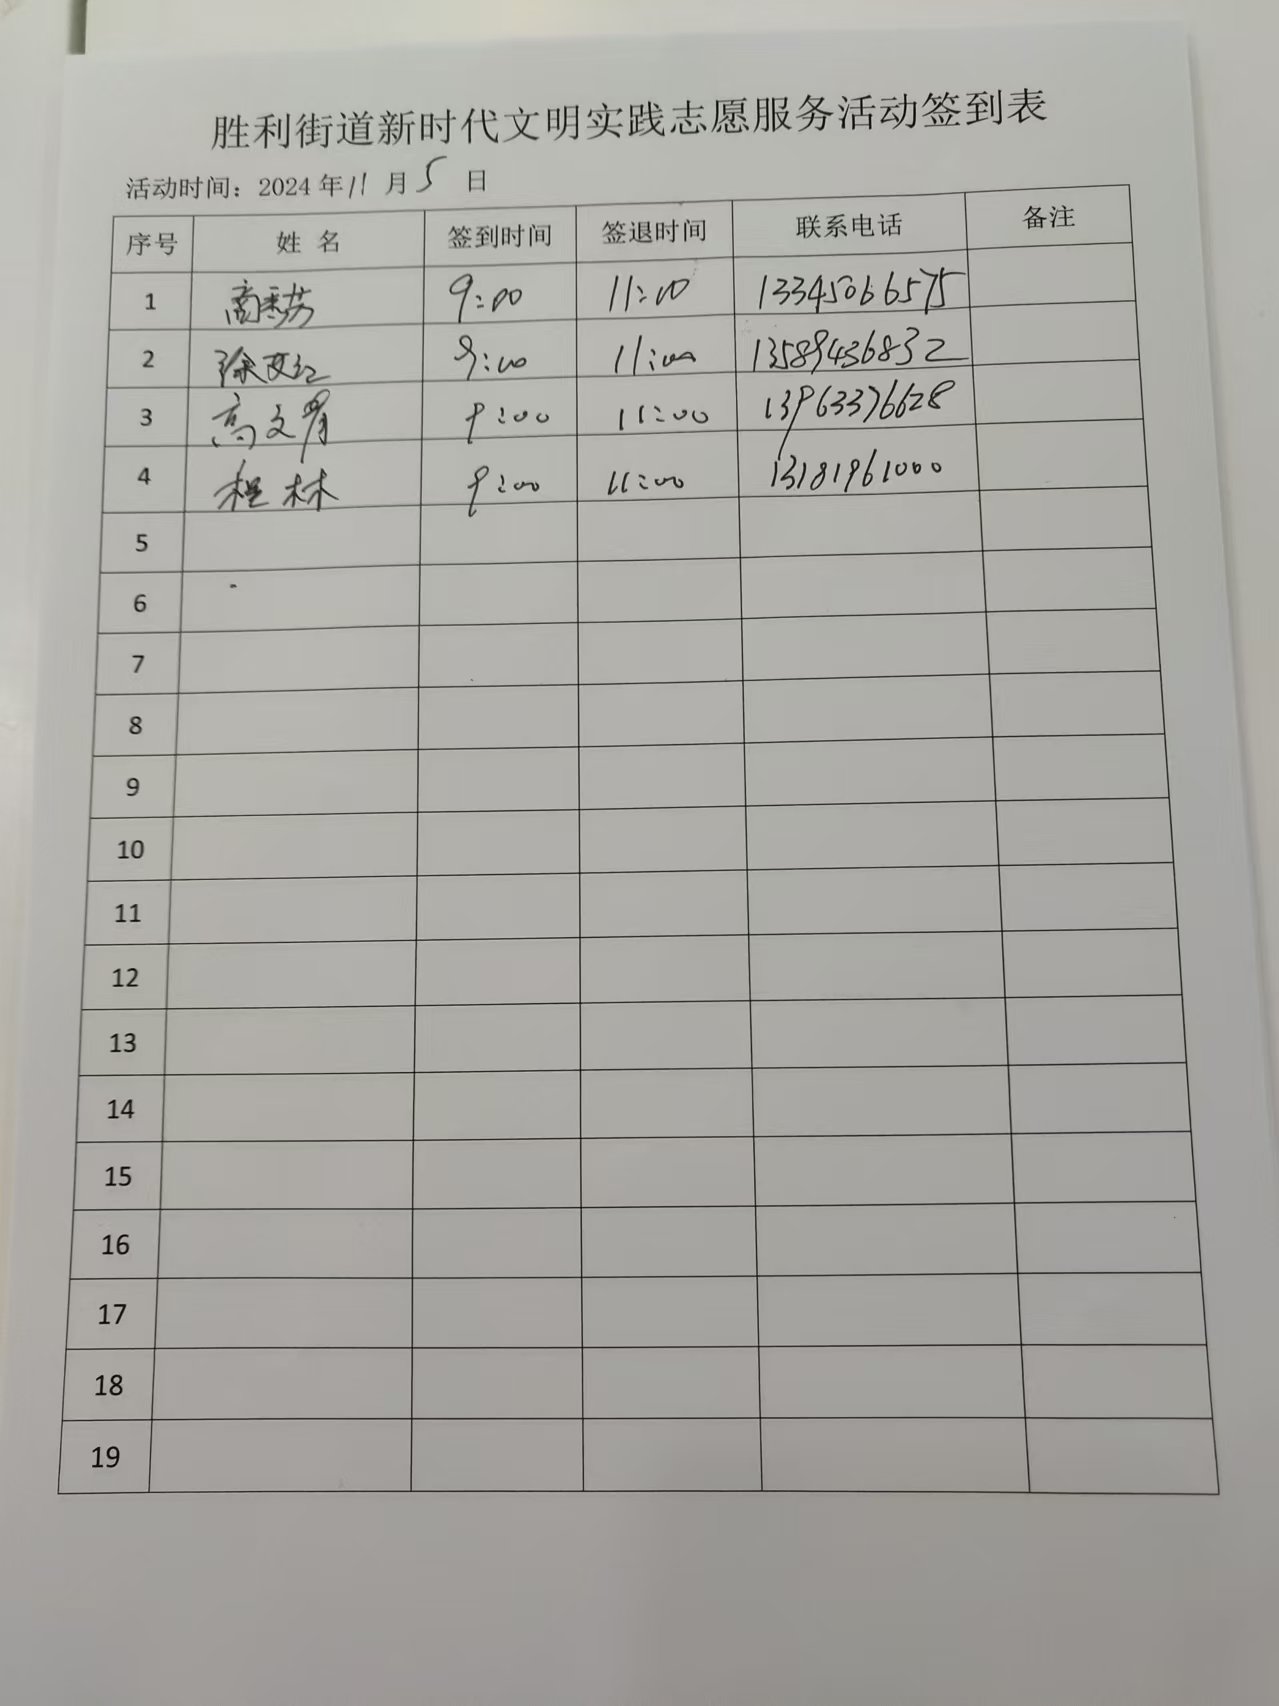 胜利街道新时代文明实践志愿服务活动签到表
活动时间：2024年11月5日
序号 姓 名 签到时间 签退时间 联系电话 备注
1 9:00 11:00 13345066575
2 徐 9:00 11:00 13589436832
3 高文 9:00 11:00 13963376628
4 程林 9:00 11:00 13181961000
5
6
7
8
9
10
11
12
13
14
15
16
17
18
19